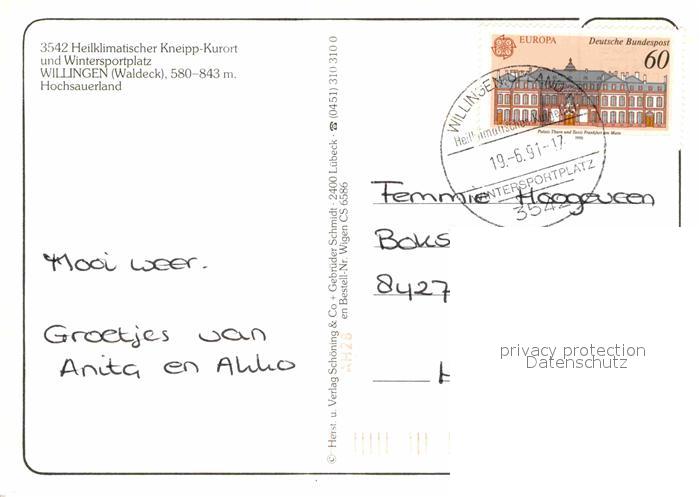 3542 Heilklimatischer Kneipp-Kurort
und Wintersportplatz
WILLINGEN (Waldeck), 580–843 m.
Hochsauerland
Mooi weer.
Groetjes van
Anita en Akko
© Herst. u. Verlag Schöning & Co + Gebrüder Schmidt · 2400 Lübeck · ☎ (0451) 310 310 0
en Bestell-Nr. Wigen CS 6586
AH28
EUROPA
Deutsche Bundespost
60
Palais Thurn und Taxis Frankfurt am Main
1990
WILLINGEN, UPLAND
Heilklimatischer Kneipp
19.-6.91-17
WINTERSPORTPLATZ
3542
Femmie Hoogeveen
Boks
8427
privacy protection
Datenschutz